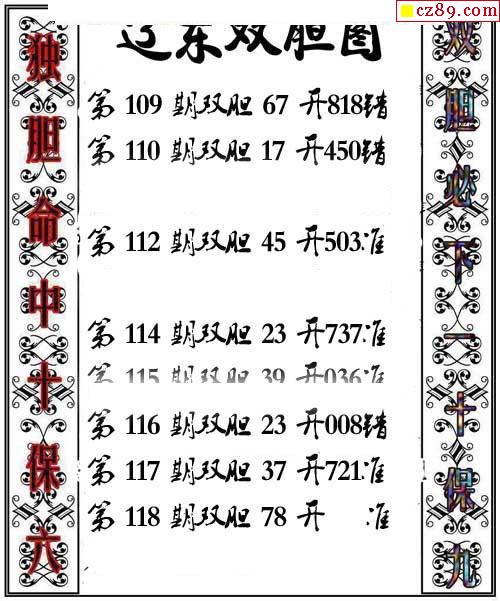 cz89.com
辽东双胆图
独胆命中十保六
第 109 期双胆 67 开818错
第 110 期双胆 17 开450错
第 112 期双胆 45 开503准
第 114 期双胆 23 开737准
第 115 期双胆 39 开036准
第 116 期双胆 23 开008错
第 117 期双胆 37 开721准
第 118 期双胆 78 开 准
双胆必下一十保九